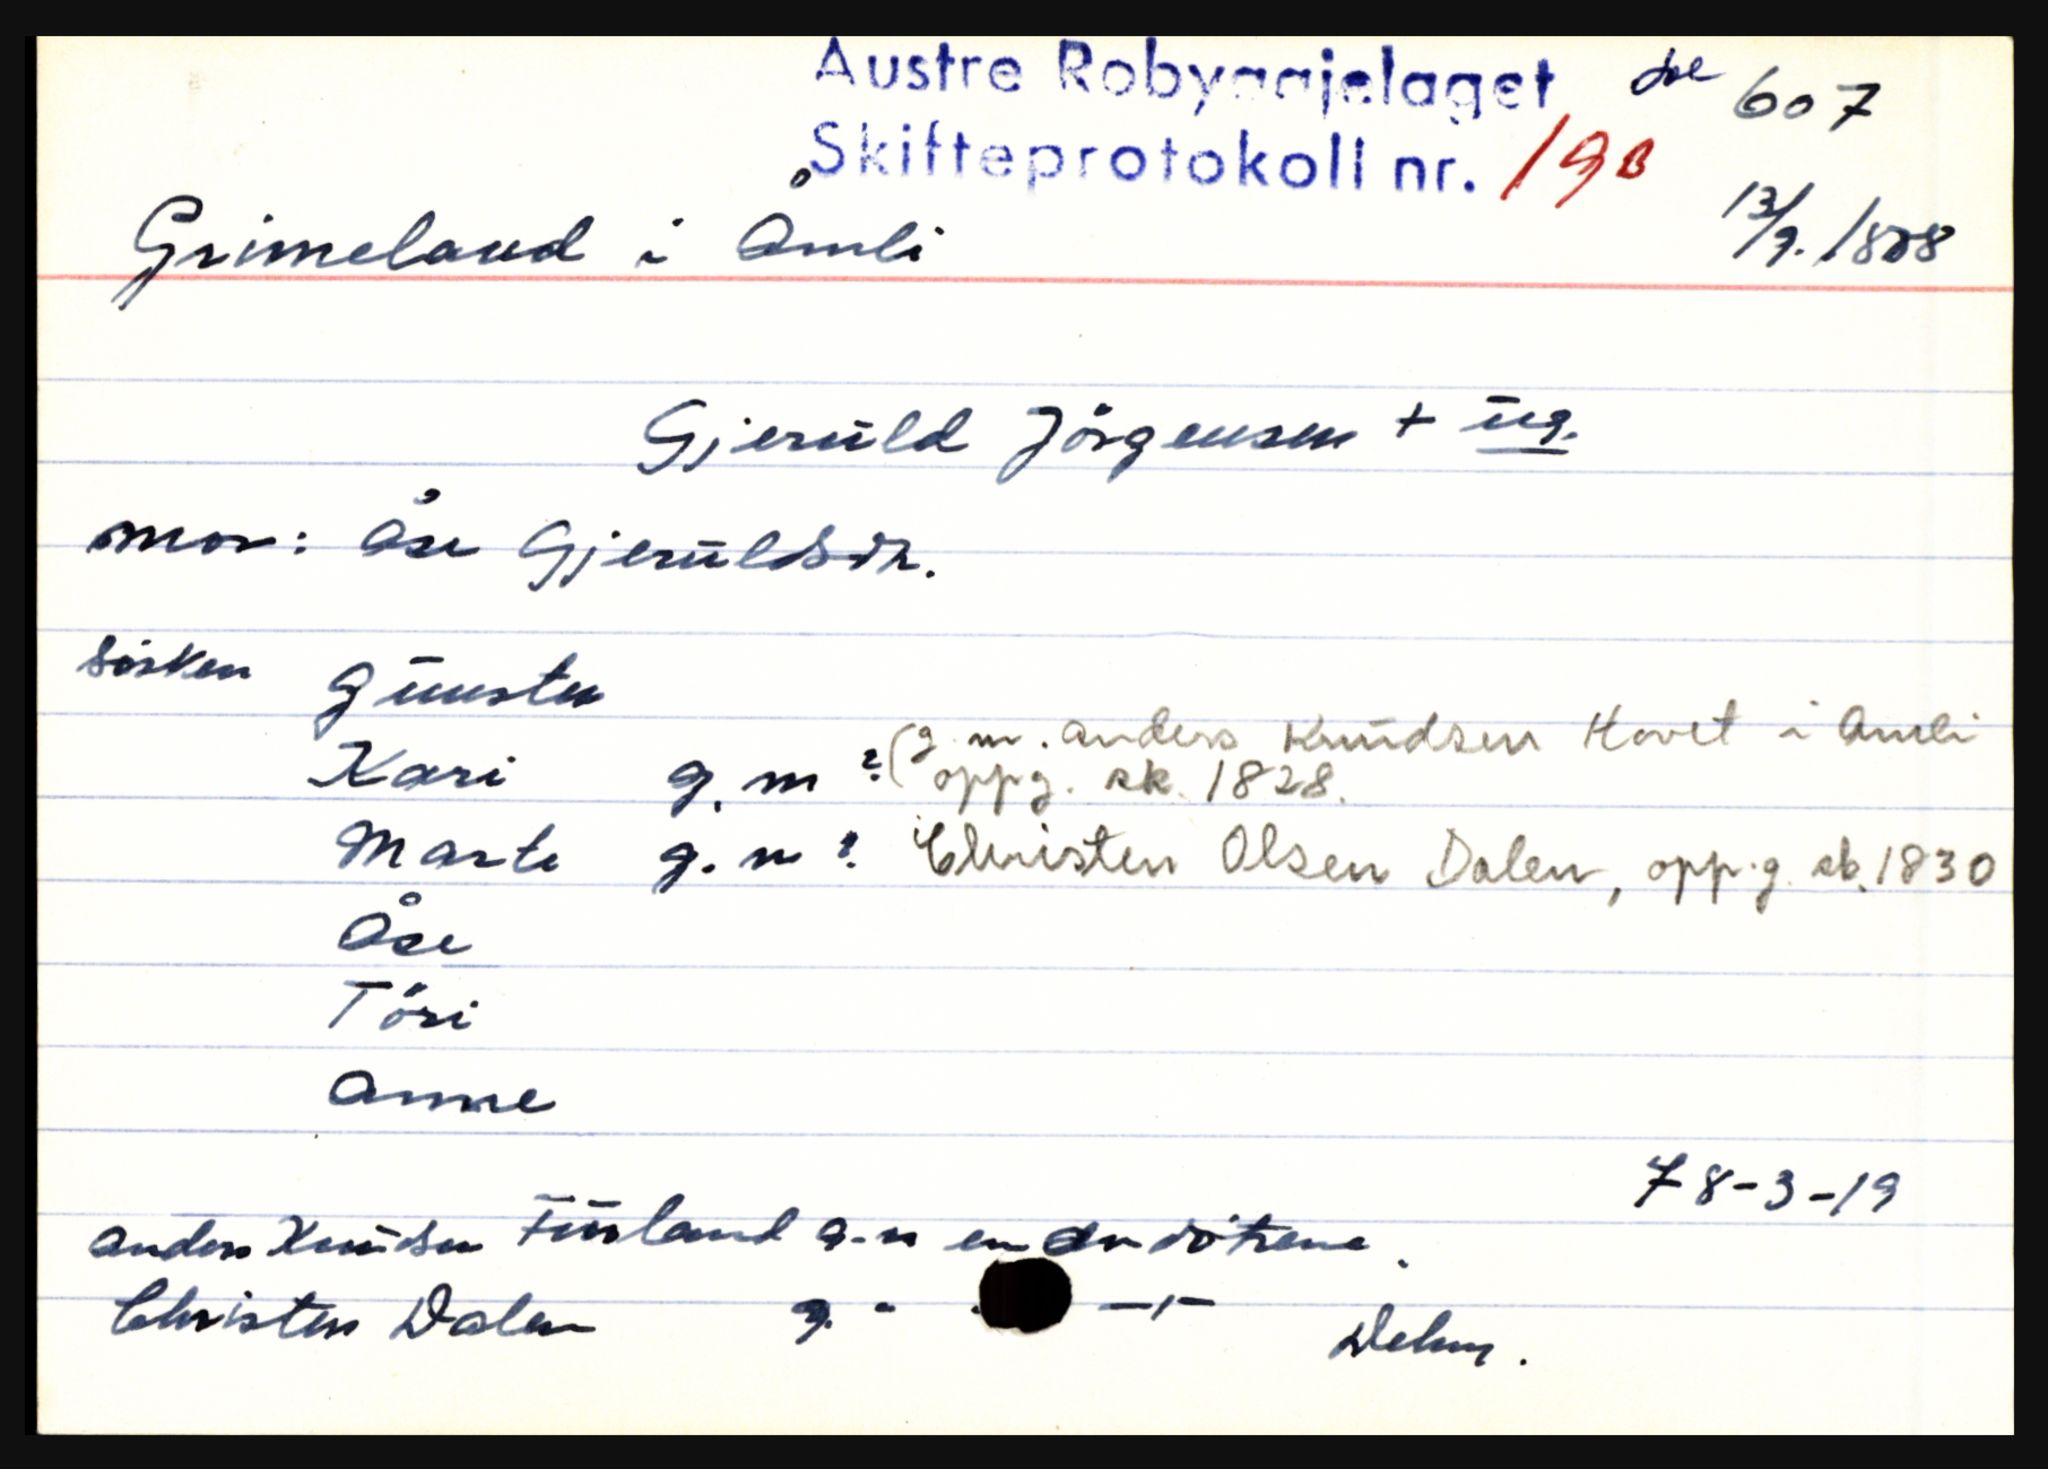 Austre Robyggjelaget 607
Skifteprotokoll nr. 19B
Grimeland i Åmli 13/9. 1808
Gjeruld Jörgensen + ug.
mor: Åse Gjeruldsdr.
Sösken Gunster
Kari g. m ? (g. m. Anders Knudsen Hovet i Amli
oppg. sk. 1828.
Marte g. m ? Christen Olsen Dalen, oppg. sk. 1830
Åse
Töri
Anne
78-3-19
Anders Knudsen g. m en av dötrene.
Christen Dalen g. - -"-